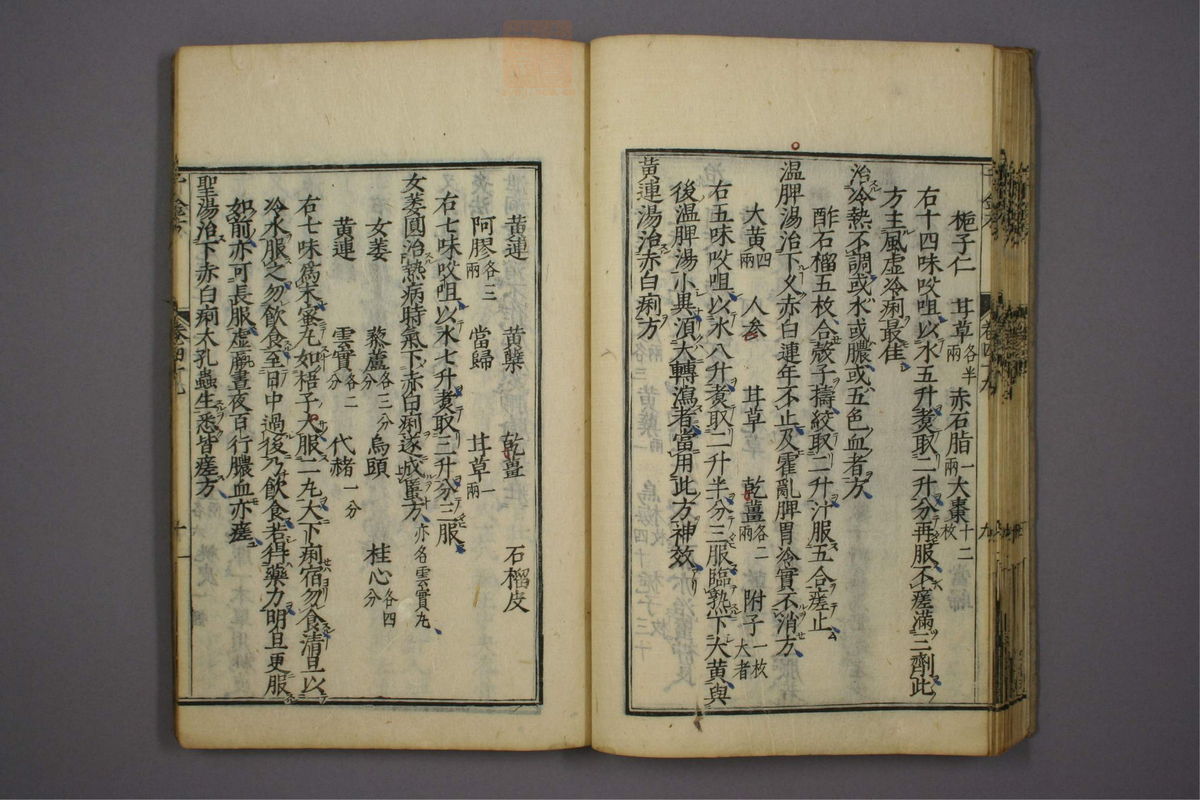 梔子仁　甘草各半兩　赤石脂一兩　大棗十二枚
右十四味㕮咀以水五升煑取二升分再服不瘥滿三劑此
方主風虛冷痢最佳
治冷熱不調或水或膿或五色血者方
酢石榴五枚合殼子擣絞取二升汁服五合瘥止
溫脾湯治下久赤白連年不止及霍亂脾胃冷實不消方
大黃四兩　人參　甘草　乾薑各二兩　附子一枚大者
右五味㕮咀以水八升煑取二升半分三服臨熟下大黃與
後溫脾湯小異湏大轉瀉者當用此方神效
黃連湯治赤白痢方
黃連　黃蘗　乾薑　石榴皮
阿膠各三兩　當歸　甘草一兩
右七味㕮咀以水七升煑取三升分三服
女萎圓治熱病時氣下赤白痢遂成䘌方亦名雲實丸
女萎　藜蘆各三分　烏頭　桂心各四分
黃連　雲實各二分　代赭一分
右七味爲末蜜丸如梧子大服二丸大下痢宿勿食清旦以
冷水服之勿飲食至日中過後乃飲食若得藥力明旦更服
如前亦可長服虛羸晝夜百行膿血亦瘥
聖湯治下赤白痢大孔蟲生悉皆瘥方
千金方
卷四十九
九
十